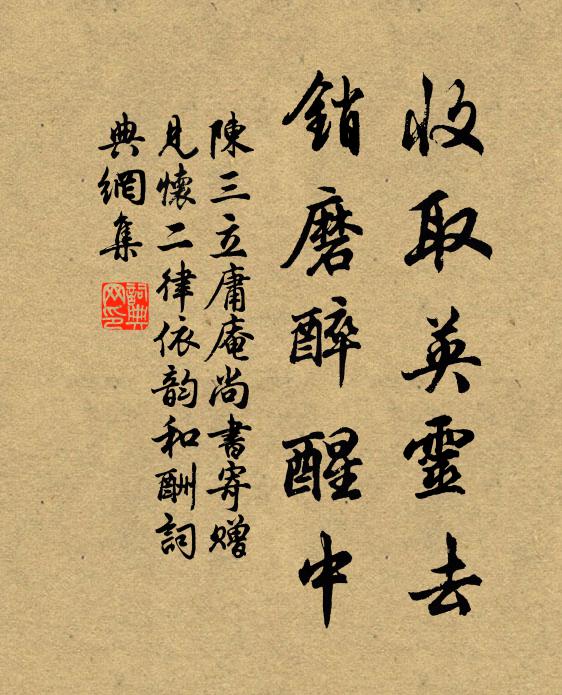 收取英靈去
銷磨醉醒中
陳三立庸庵尚書寄贈
見懷二律依韵和酬詞
典網集
詞典網印